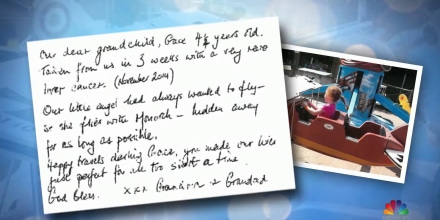 Our dear grandchild, Grace 4¼ years old.
Taken from us in 3 weeks with a very rare
liver cancer. (November 2014)
Our little angel had always wanted to fly -
so she flies with Monarch - hidden away
for as long as possible.
Happy travels darling Grace, you made our lives
just perfect for all too short a time.
God bless. xxx Grandma + Grandad